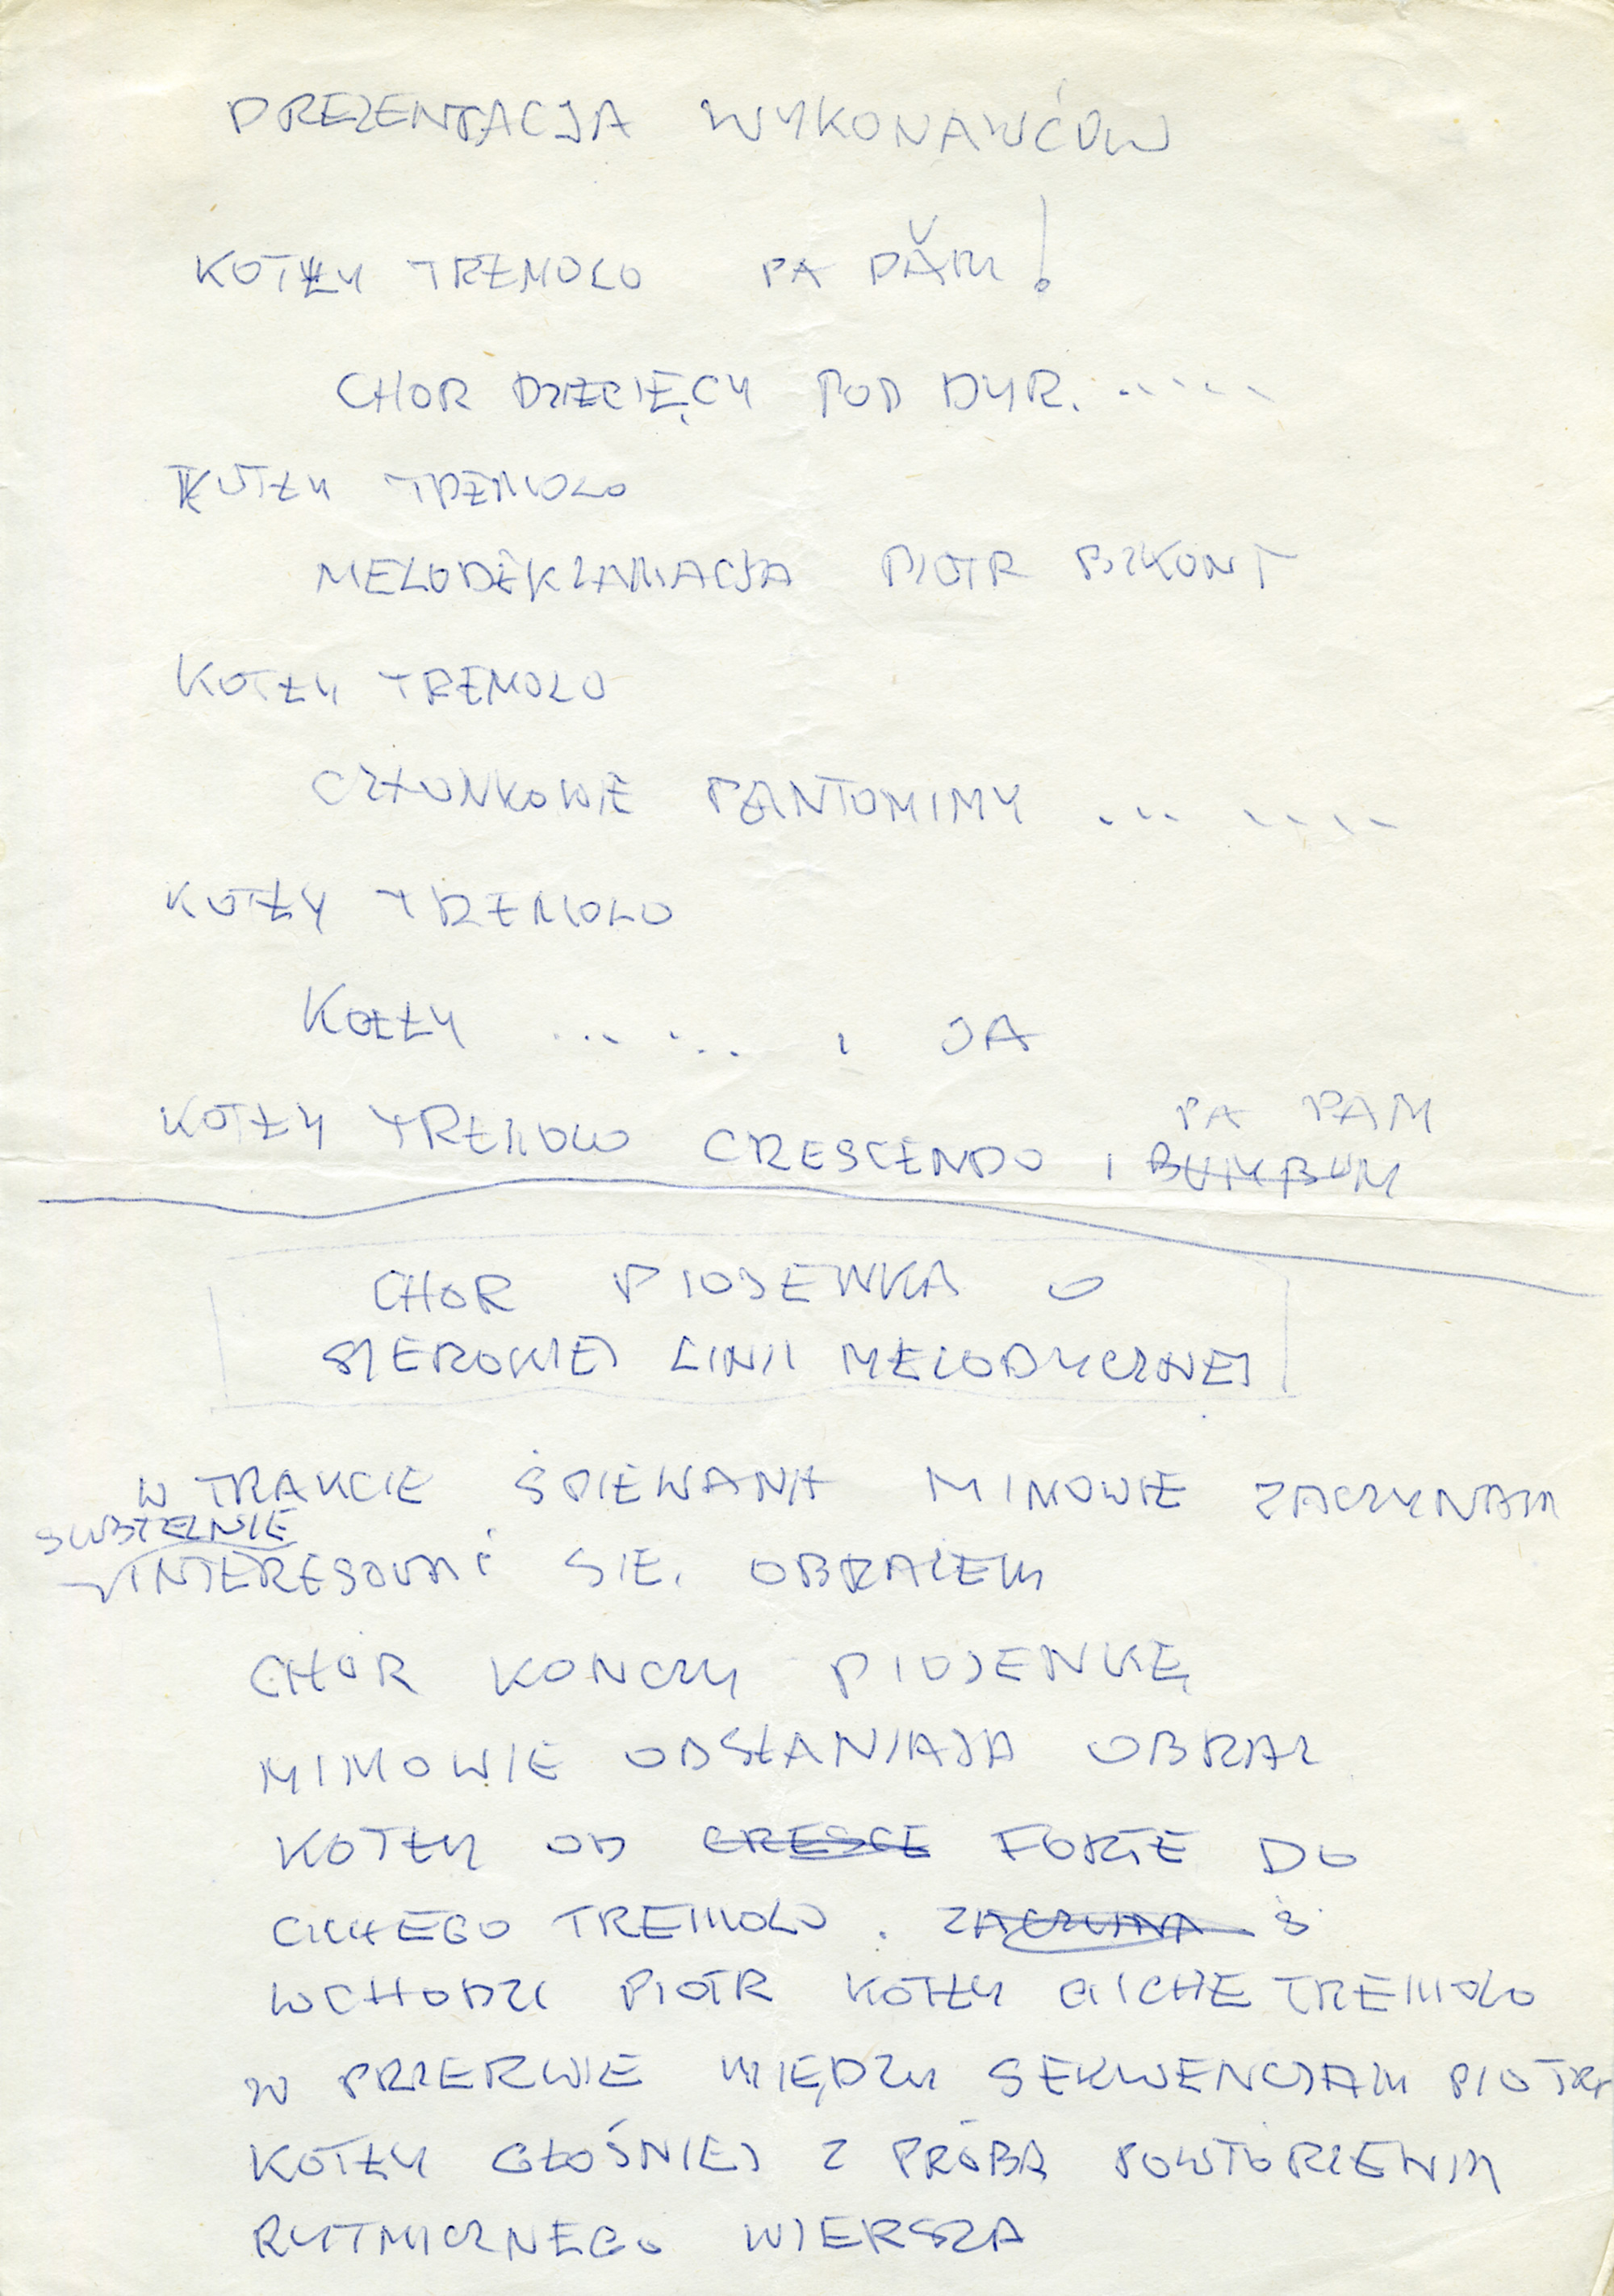 PREZENTACJA WYKONAWCÓW
KOTŁY TREMOLO PA PAM!
CHOR DZIECIĘCY POD DYR. .....
KOTŁY TREMOLO
MELODEKLAMACJA PIOTR BIKONT
KOTŁY TREMOLO
CZŁONKOWIE PANTOMIMY ... ....
KOTŁY TREMOLO
KOTŁY ... ... i JA
PA PAM
KOTŁY TREMOLO CRESCENDO i BUMBUM
CHOR PIOSENKA O
SZEROKIEJ LINII MELODYCZNEJ
W TRAKCIE ŚPIEWANIA MIMOWIE ZACZYNAJĄ
SUBTELNIE
INTERESOWAĆ SIĘ OBRAZEM
CHOR KONCZY PIOSENKĘ
MIMOWIE ODSŁANIAJA OBRAZ
KOTŁY OD CRESCE FORTE DO
CICHEGO TREMOLO. ZACZYNA
WCHODZI PIOTR KOTŁY CICHE TREMOLO
W PRZERWIE MIĘDZY SEKWENCJAMI PIOTRA
KOTŁY GŁOŚNIEJ Z PRÓBĄ POWTÓRZENIA
RYTMICZNEGO WIERSZA